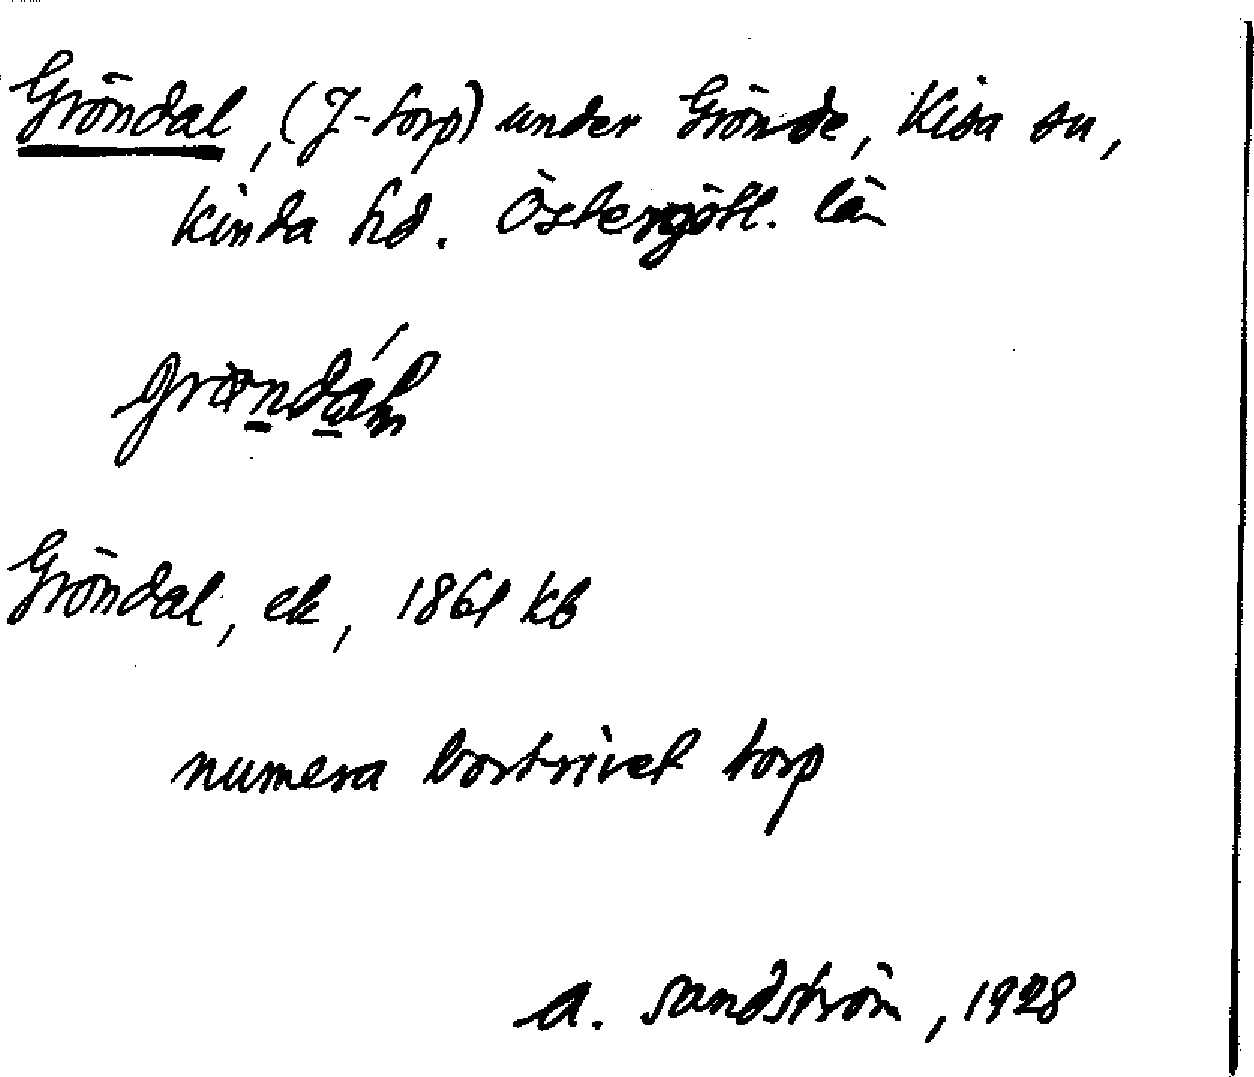 Gröndal, (J-torp) under Grönde, Kisa sn,
Kinda hd. Östergötl. län
Gröndal, ek, 1861 kb
numera bortrivet torp
A. Sandström, 1928